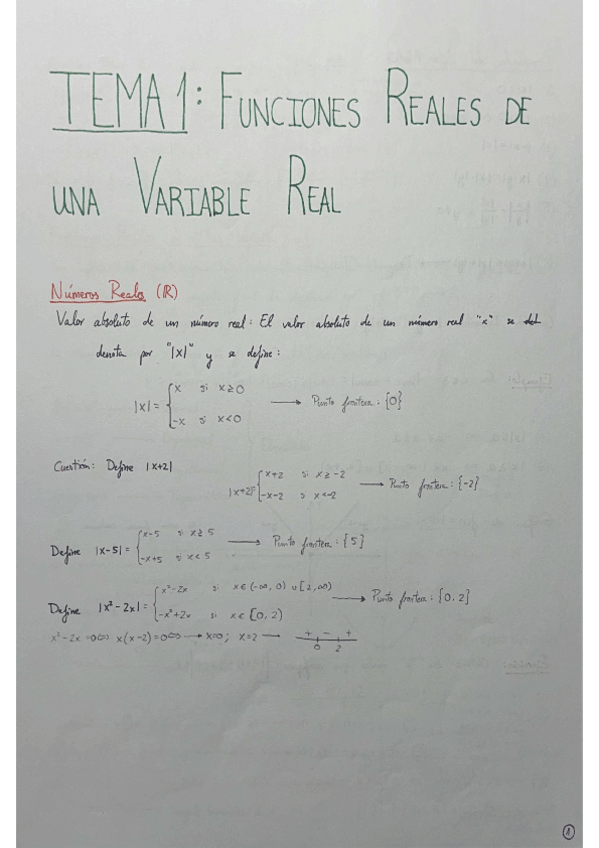 TEMA 1: FUNCIONES REALES DE
UNA VARIABLE REAL
Números Reales (ℝ)
Valor absoluto de un número real: El valor absoluto de un número real "x" se
denota por "|x|" y se define:
|x| = { x si x ≥ 0 → Punto frontera: {0}
-x si x < 0
Cuestión: Define |x+2|
|x+2| = { x+2 si x ≥ -2 → Punto frontera: {-2}
-x-2 si x < -2
Define |x-5| = { x-5 si x ≥ 5 → Punto frontera: {5}
-x+5 si x < 5
Define |x²-2x| = { x²-2x si x ∈ (-∞, 0) ∪ [2, ∞) → Punto frontera: {0, 2}
-x²+2x si x ∈ [0, 2)
x²-2x = 0 ⇔ x(x-2) = 0 ⇔ → x=0; x=2 → + - +
0 2
1